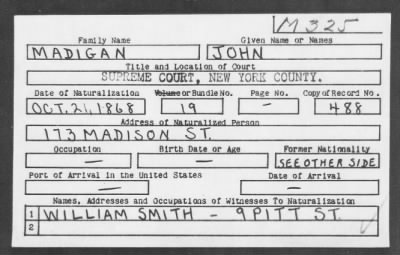 M325
Family Name Given Name or Names
MADIGAN JOHN
Title and Location of Court
SUPREME COURT, NEW YORK COUNTY.
Date of Naturalization Volume or Bundle No. Page No. Copy of Record No.
OCT. 21, 1868 19 - 488
Address of Naturalized Person
173 MADISON ST.
Occupation Birth Date or Age Former Nationality
— — SEE OTHER SIDE
Port of Arrival in the United States Date of Arrival
— —
Names, Addresses and Occupations of Witnesses To Naturalization
1 WILLIAM SMITH - 9 PITT ST.
2